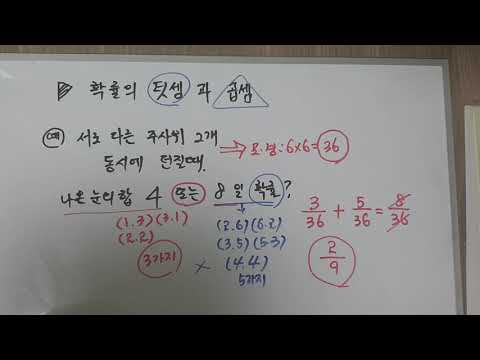 ▷ 확률의 덧셈 과 곱셈
예) 서로 다른 주사위 2개 ⇒ 모.경:6×6=36
동시에 던질때.
나온 눈의 합 4 또는 8 일 확률?
(1.3)(3.1)
(2.2)
3가지
×
(2.6)(6.2)
(3.5)(5.3)
(4.4)
5가지
3/36 + 5/36 = 8/36
2/9